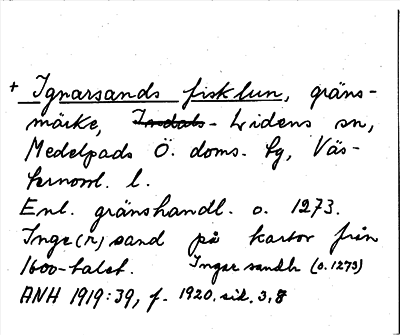 + Ignarsands fisklun, gräns-
märke, Indals- Lidens sn,
Medelpads Ö. doms. sg, Väs-
ternorrl. l.
Enl. gränshandl. o. 1273.
Inge(r)sand på kartor från
1600-talet. Ingar sandh (o. 1273)
ANH 1919:39, f. 1920. sid. 3, 8